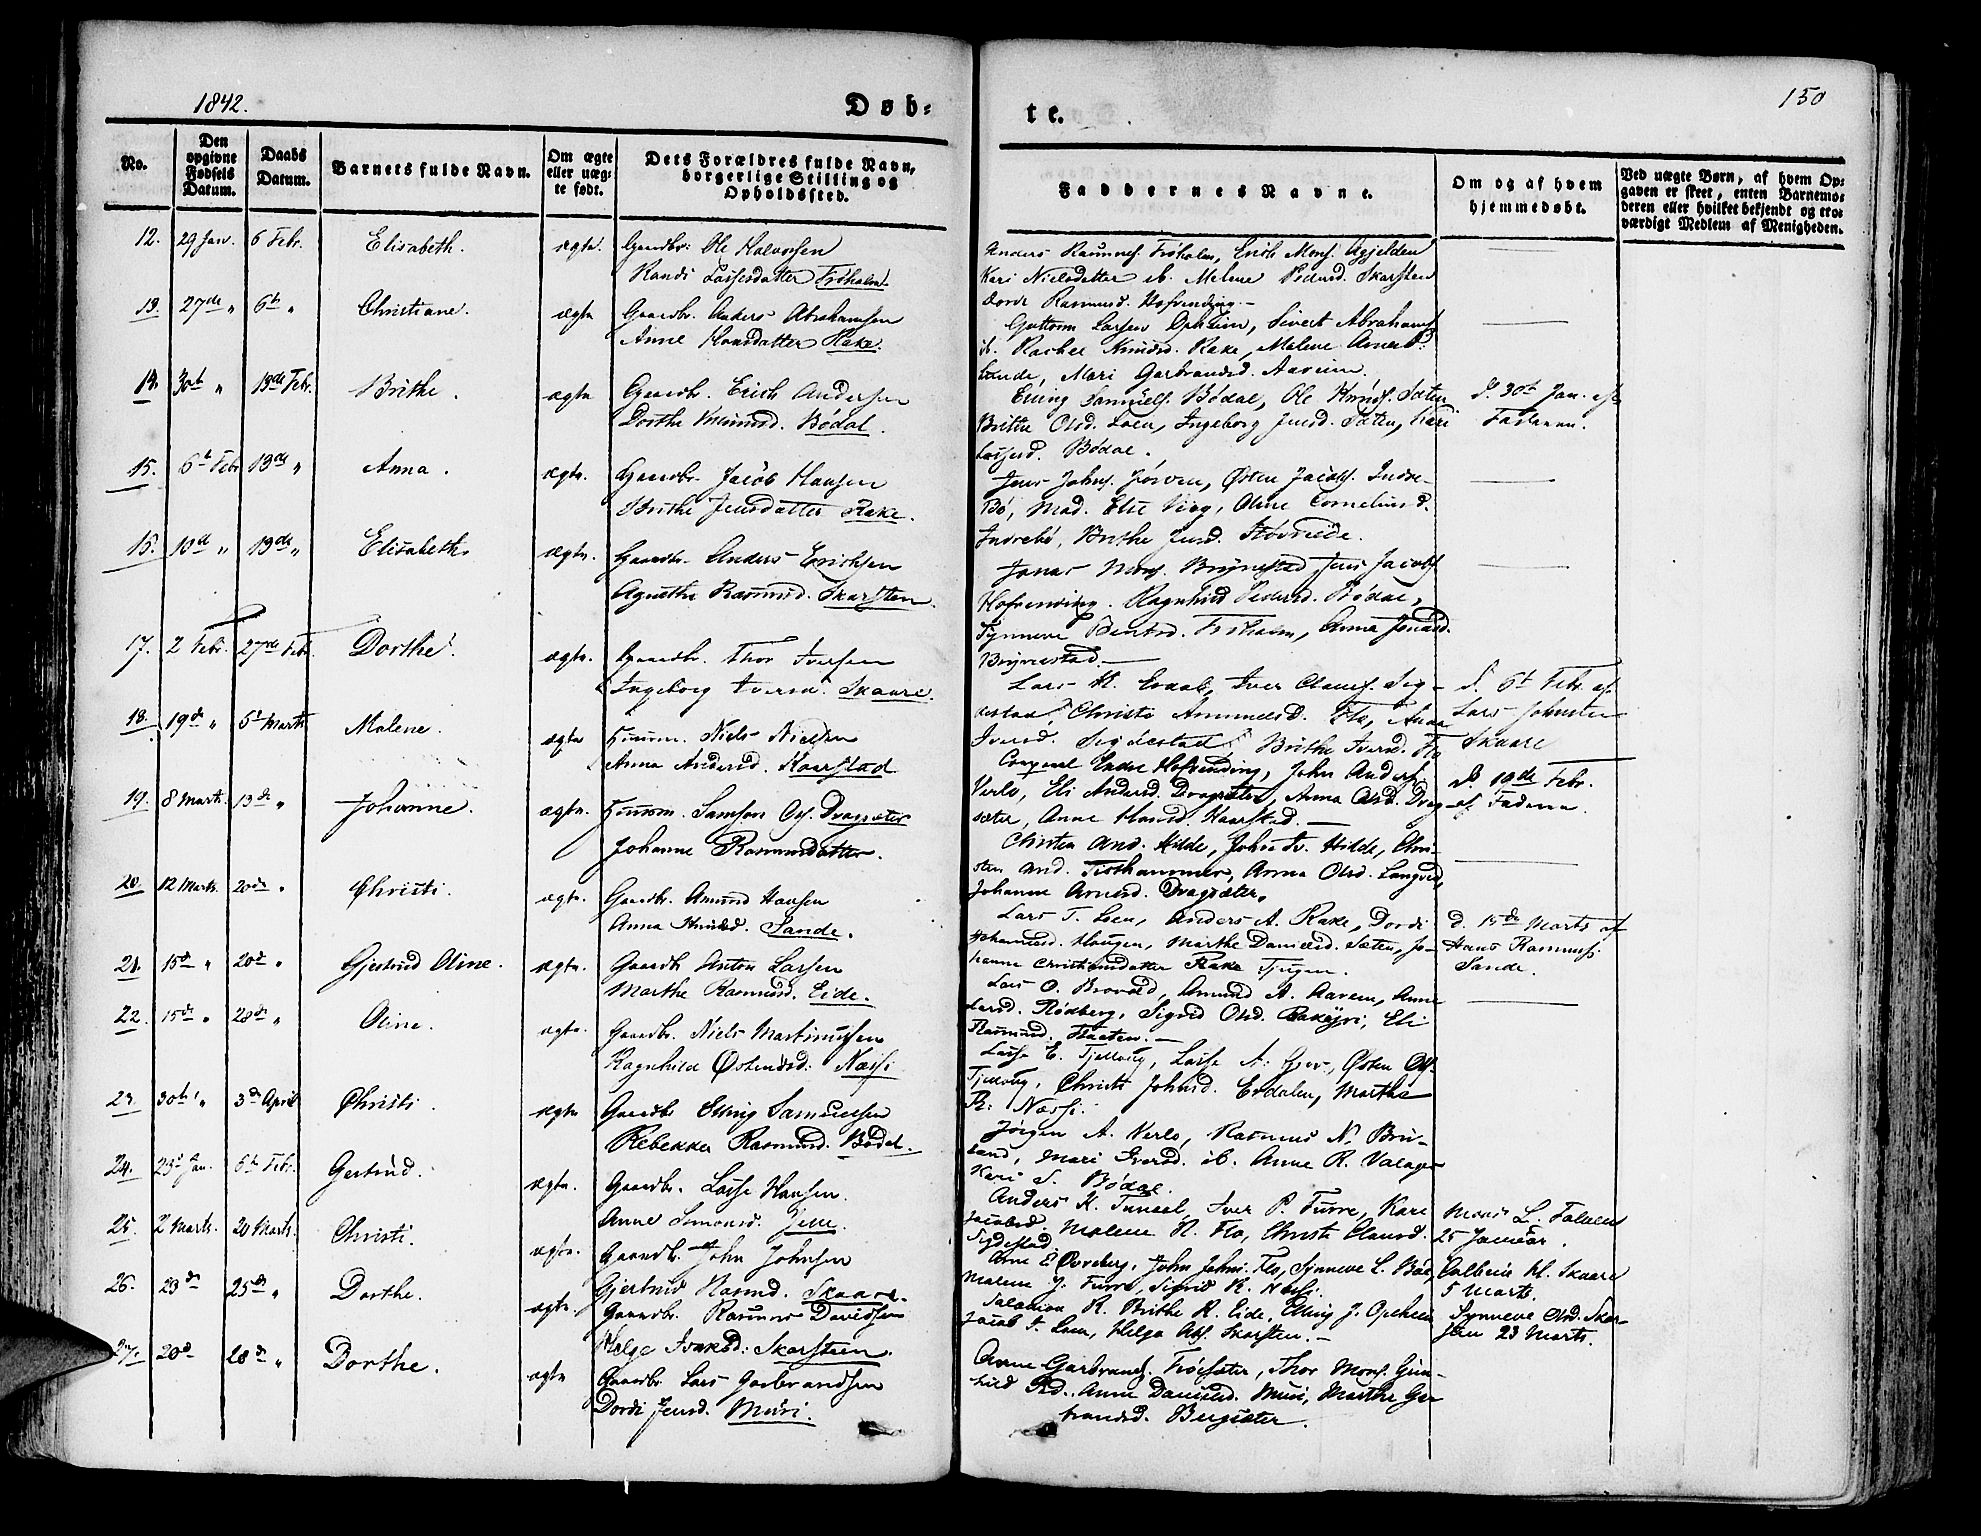 1842.
Døb-
te.
150
No.
Den opgivne Fødsels Datum.
Daabs Datum.
Barnets fulde Navn.
Om ægte eller uæg-te født.
Dets Forældres fulde Navn, borgerlige Stilling og Opholdssted.
Faddernes Navne.
Om og af hvem hjemmedøbt.
Ved uægte Børn, af hvem Op-gaven er skeet, enten Barnemo-deren eller hvilket bekjendt og tro-værdigt Medlem af Menigheden.
12. 29 Jan. 6 Febr. Elisabeth. ægte. Gaardbr. Ole Halvorsen
Randi Lassesdatter Frøholm.
Anders Rasmuss. Frøholm, Erich Mons.
Kari Nielsdatter ib. Malene Pedersd. Skarsten
Dorde Rasmusd. Hofrending.
13. 27de " 6te " Christiane. ægte Gaardbr. Anders Abrahamsen
Anne Hansdatter Rake.
Guttorm Larsen Opheim, Sivert Abrahams.
ib. Rachel Knudsd. Rake, Malene
Sande, Mari Garbrandsd. Aareim.
14. 30te " 13de Febr. Brithe. ægte Gaardbr. Erich Andersen
Dorthe Rasmusd. Bødal.
Elling Samuels. Bødal, Ole Knuds. Sæten
Brithe Olsd. Loen, Ingeborg Jensd. Sæten, Kari
Lassesd. Bødal.
D. 30te Jan. af
Faderen.
15. 6te Febr 13de " Anna. ægte. Gaardbr. Jacob Hansen
Brithe Jensdatter Rake.
Jens Johns. Jørven, Østen Jacobs. Indre-
Bø, Mad. Else Viig, Oline Cornelius d.
Indrebø, Brithe Jensd.
15. 10de " 13de " Elisabeth. ægte. Gaardbr. Anders Erichsen
Agnethe Rasmusd. Skarsten.
Jonas Mons. Brynestad Jens Jacobs.
Hofrending. Ragnhild Pedersd. Bødal,
Synneve Bentsd. Frøholm, Anna Jonasd.
Brynestad.
17. 2 Febr. 27de Feb. Dorthe. ægte. Gaardbr. Thor Iversen
Ingeborg Iversd. Skaare.
Lars H. Erdal, Iver Claus. Sig-
destad, Christi Amundsd. Flo, Anna
Iversd. Sigdestad, Brithe Iversd. Flo
D. 6te Febr. af
Lars Johnsen
Skaare
18. 19de " 5te Marts Malene. ægte Huusm. Niels Nielsen
Anna Andersd. Kaarstad
Corporal Endre Hofrending, John Anders.
Verlo, Eli Andersd. Dragsæter, Anna Olsd. Drag-
sæter, Anne Hansd. Kaarstad.
D. 19de Febr.
af Faderen.
19. 8 Marts. 13de " Johanne. ægte. Huusm. Samson Dragsæter
Johanne Rasmusdatter.
Christen And. Hilde, John Hilde, Chri-
sten And. Tisthammer, Anna Olsd. Langvid,
Johanne Arnesd. Dragsæter.
20. 12 Marts. 20de " Christi. ægte. Gaardbr. Amund Hansen
Anna Knudsd. Sande.
Lars T. Loen, Anders A. Rake, Dordi
Johannesd. Haugen, Marthe Danielsd. Sæten, Jo-
hanne Christiansdatter Rake Tjugen.
D. 15de Marts af
Hans Rasmuss.
Sande.
21. 15de " 20de " Gjertrud Oline. ægte. Gaardbr. Anton Larsen
Marthe Rasmusd. Eide.
Lars O. Brovold, Amund A. Aareim, Anne
Larsd. Rødberg, Sigrid Olsd. Eli
Rasmusd.
22. 15de " 28de " Oline. ægte. Gaardbr. Niels Martinussen
Ragnhild Østensd. Næssi
Lasse E. Tjelloug, Lasse A. Østen Ols.
Tjelloug, Christi Johnsd. Erdalen, Marthe
R. Næssi.
23. 30te " 3de April Christi. ægte. Gaardbr. Elling Samuelsen
Rebekka Rasmusd. Bødal.
Jørgen A. Verlo, Rasmus N. Bru-
land, Mari Iversd. ib. Anne R.
Kari S. Bødal.
24. 23de Jan. 6te Febr. Gertrud. ægte. Gaardbr. Lasse Hansen.
Anne Simonsd.
Anders K. Tunold, Iver P. Furre, Kari
Jacobsd. Malene H. Flo, Christi Clausd.
Sigdestad.
Mons L. Folven
25 Januar.
25. 2 Marts. 20 Marts. Christi. ægte. Gaardbr. John Johnsen
Gjertrud Rasmusd. Skaare.
Arne E. Øvreberg, John Johns. Flo, Synneve L. Bøe,
Malene J. Furre, Sigrid R.
Skaare
5 Marts.
26. 23de 25de " Dorthe. ægte. Gaardbr. Rasmus Davidsen
Helge Isaksd. Skarsteen.
Salamon R. Brithe R. Eide, Elling J. Opheim
Jacob T. Loen, Helga Abs. Skarsten.
Synneve Olsd. Skar-
sten 23 Marts.
27. 20de 28de " Dorthe. ægte Gaardbr. Lars Garbrandsen
Dordi Jensd. Muri.
Anne Garbrands. Thor Mons. Gun-
hild Anne Danielsd. Muri, Marthe Gar-
brandsd. Bergsæter.